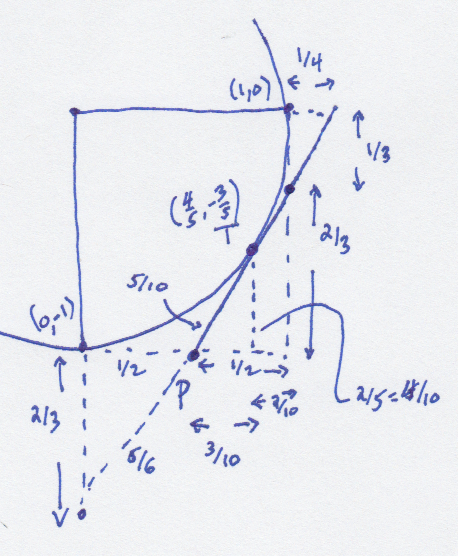 1/4
(1,0)
1/3
(4/5, -3/5)
T
2/3
5/10
(0,-1)
1/2
1/2
P
2/10
2/5=4/10
2/3
3/10
5/6